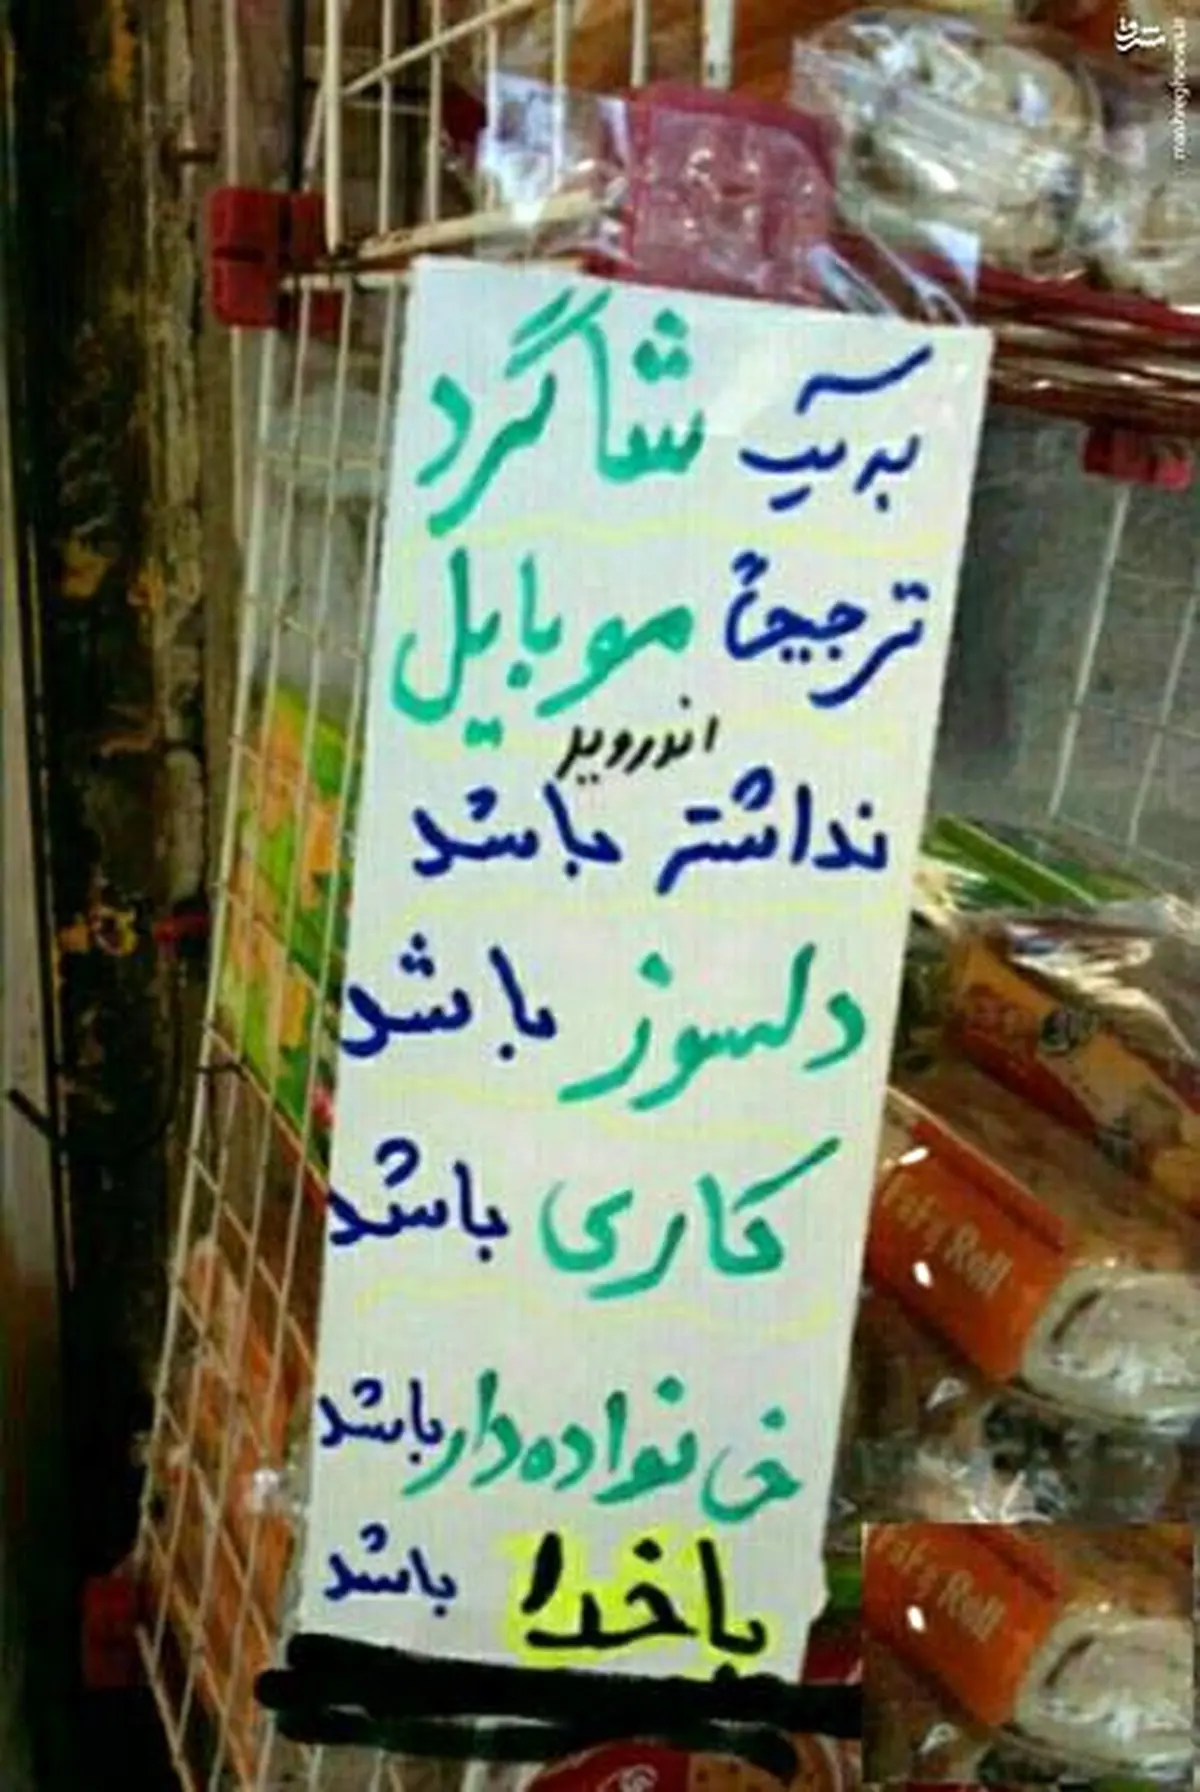 مشرق
mashreghnews.ir
به یک شاگرد
ترجیحاً موبایل
اندروید
نداشته باشد
دلسوز باشد
کاری باشد
خانواده دار باشد
با خدا باشد
Fairy Roll
Fairy Roll